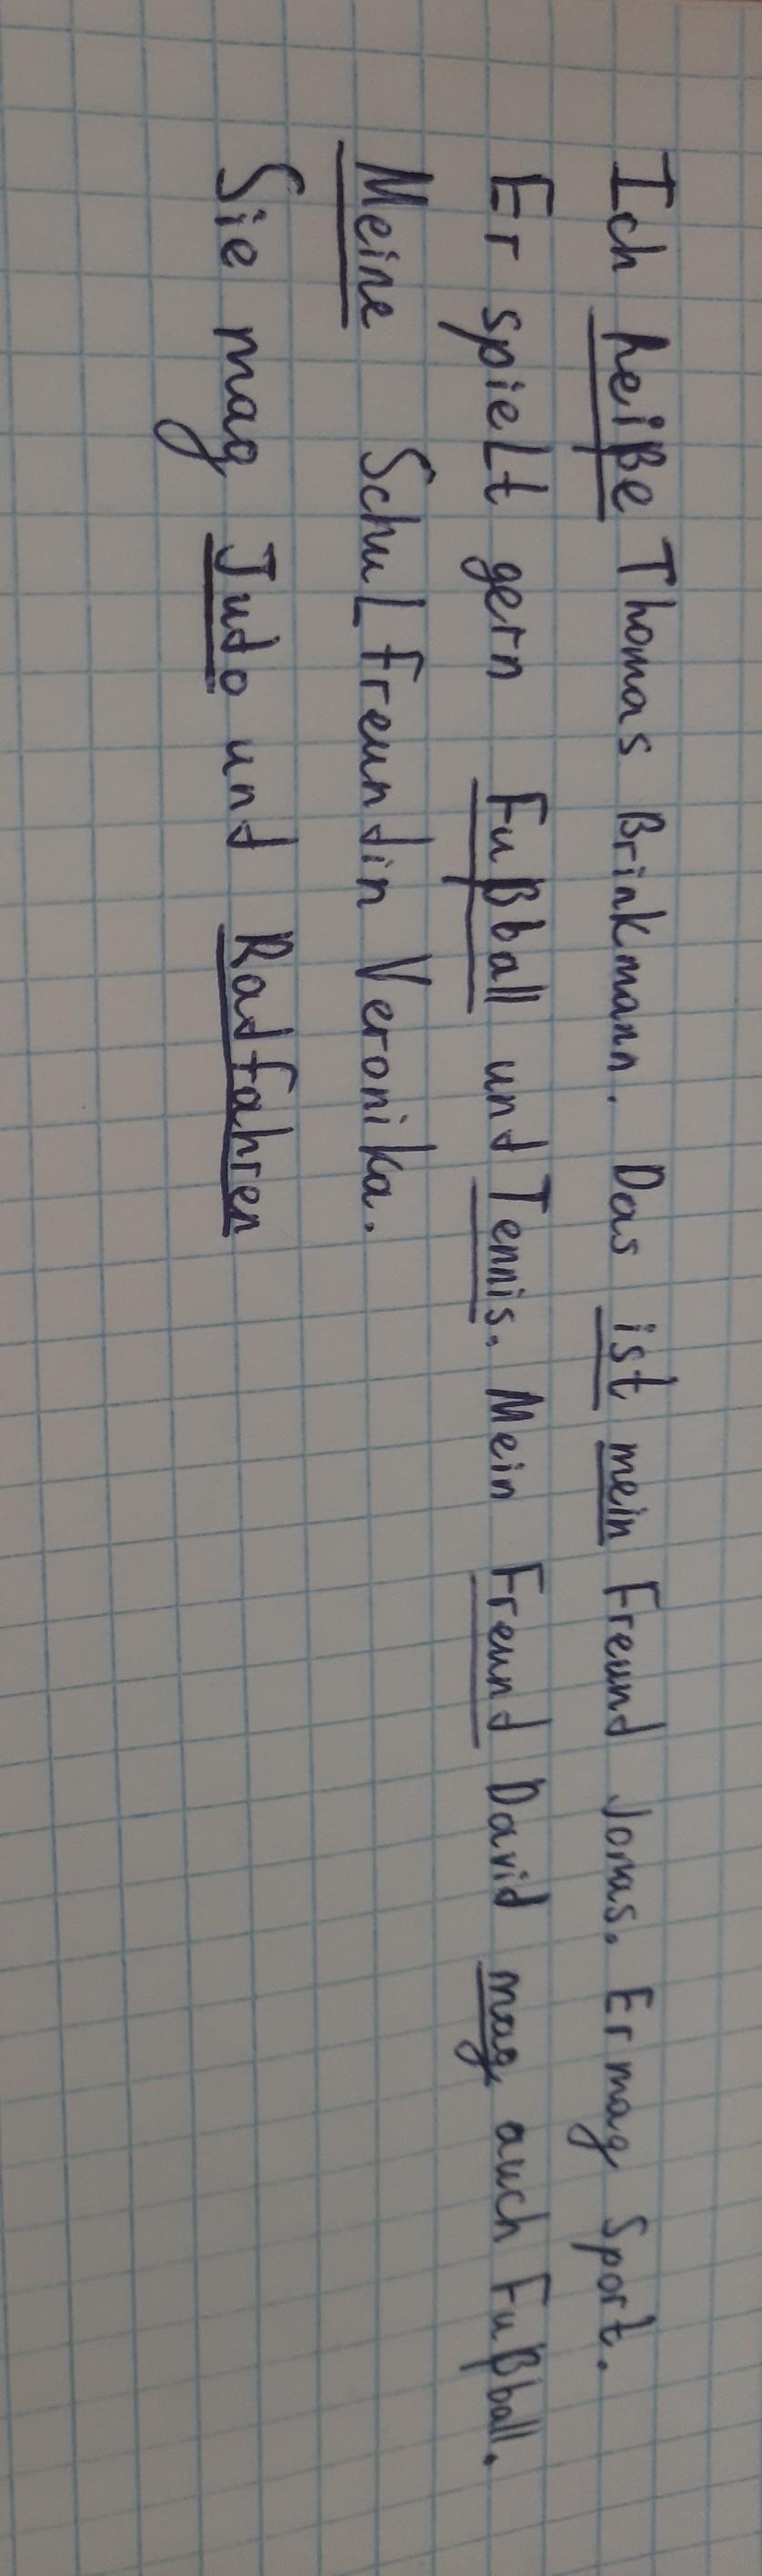 Ich heiße Thomas Brinkmann. Das ist mein Freund Jonas. Er mag Sport.
Er spielt gern Fußball und Tennis. Mein Freund David mag auch Fußball.
Meine Schulfreundin Veronika.
Sie mag Judo und Radfahren